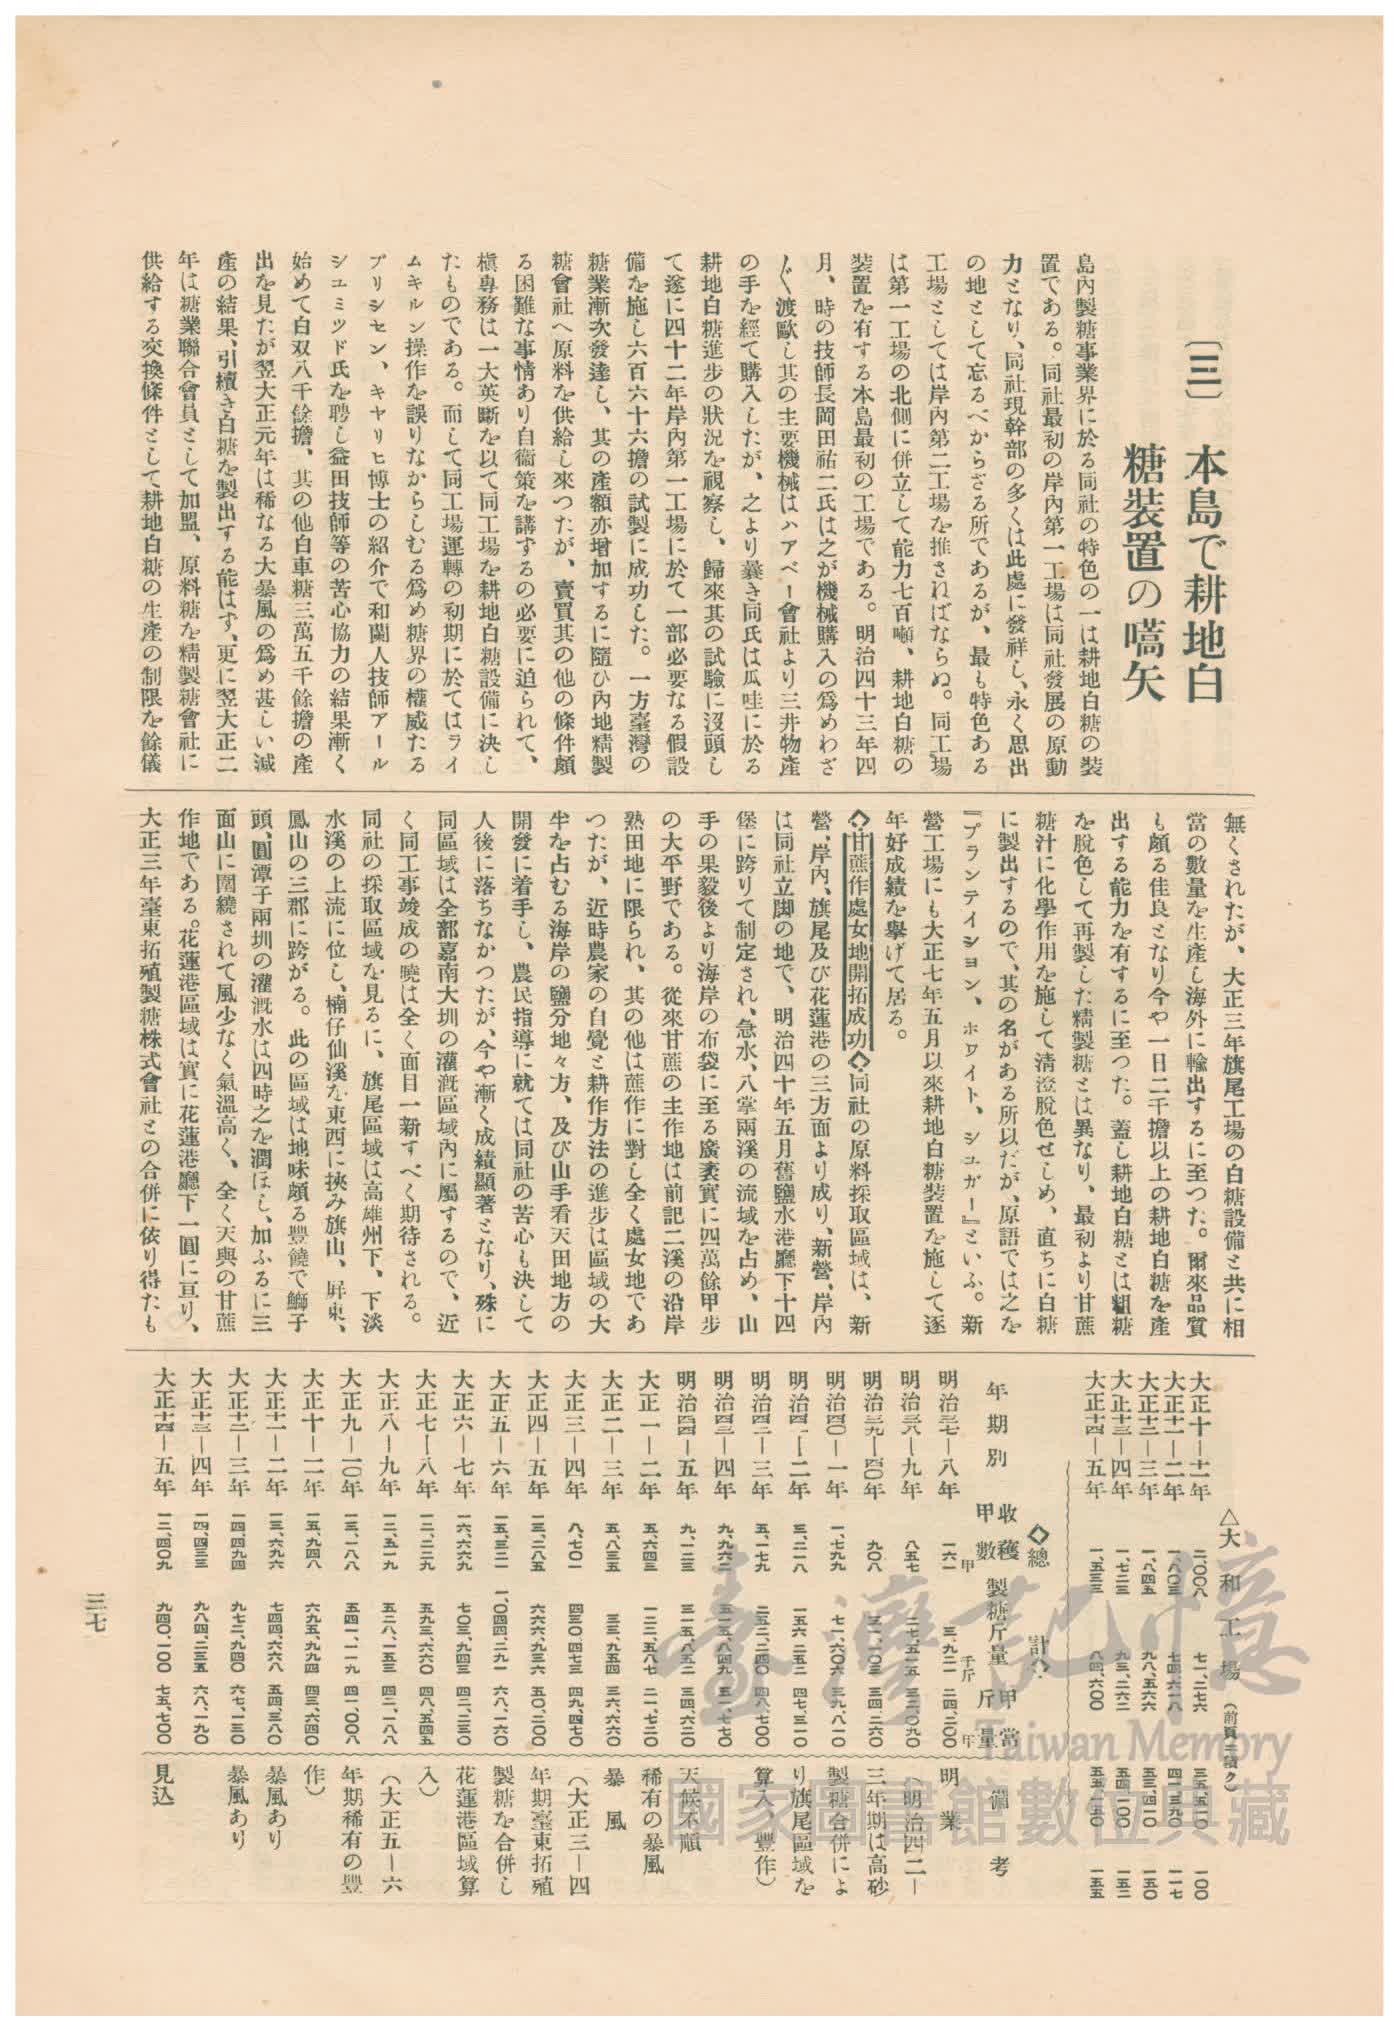 〔三〕 本島で耕地白
糖装置の嚆矢
島內製糖事業界に於る同社の特色の一は耕地白糖の裝
置である。同社最初の岸內第一工場は同社發展の原動
力となり、同社現幹部の多くは此處に發祥し、永く思出
の地として忘るべからざる所であるが、最も特色ある
工場としては岸內第二工場を推さればならぬ。同工場
は第一工場の北側に併立して能力七百噸、耕地白糖の
裝置を有する本島最初の工場である。明治四十三年四
月、時の技師長岡田祐二氏は之が機械購入の爲めわざ
〱渡歐し其の主要機械はハアベー會社より三井物產
の手を經て購入したが、之より曩き同氏は瓜哇に於る
耕地白糖進步の狀況を視察し、歸來其の試驗に沒頭し
て遂に四十二年岸內第一工場に於て一部必要なる假設
備を施し六百六十六擔の試製に成功した。一方臺灣の
糖業漸次發達し、其の產額亦增加するに隨ひ內地精製
糖會社へ原料を供給し來つたが、賣買其の他の條件頗
る困難な事情あり自衞策を講ずるの必要に迫られて、
槇專務は一大英斷を以て同工場を耕地白糖設備に決し
たものである。而して同工場運轉の初期に於てはライ
ムキルン操作を誤りなからしむる爲め糖界の權威たる
プリンセン、キヤリヒ博士の紹介で和蘭人技師アール
シユミツド氏を聘し益田技師等の苦心協力の結果漸く
始めて白双八千餘擔、其の他白車糖三萬五千餘擔の產
出を見たが翌大正元年は稀なる大暴風の爲め甚しい減
產の結果、引續き白糖を製出する能はす、更に翌大正二
年は糖業聯合會員として加盟、原料糖を精製糖會社に
供給する交換條件として耕地白糖の生產の制限を餘儀
無くされたが、大正三年旗尾工場の白糖設備と共に相
當の數量を生產し海外に輸出するに至つた。爾來品質
も頗る佳良となり今や一日二千擔以上の耕地白糖を產
出する能力を有するに至つた。蓋し耕地白糖とは粗糖
を脫色して再製した精製糖とは異なり、最初より甘蔗
糖汁に化學作用を施して清澄脫色せしめ、直ちに白糖
に製出するので、其の名がある所以だが、原語では之を
『プランテイシヨン、ホワイト、シユガー』といふ。新
營工場にも大正七年五月以來耕地白糖裝置を施して逐
年好成績を擧げて居る。
◇甘蔗作處女地開拓成功◇同社の原料採取區域は、新
營、岸內、旗尾及び花蓮港の三方面より成り、新營、岸內
は同社立脚の地で、明治四十年五月舊鹽水港廳下十四
堡に跨りて制定され、急水、八掌兩溪の流域を占め、山
手の果毅後より海岸の布袋に至る廣袤實に四萬餘甲步
の大平野である。從來甘蔗の主作地は前記二溪の沿岸
熟田地に限られ、其の他は蔗作に對し全く處女地であ
つたが、近時農家の自覺と耕作方法の進步は區域の大
半を占むる海岸の鹽分地々方、及び山手看天田地方の
開發に着手し、農民指導に就ては同社の苦心も決して
人後に落ちなかつたが、今や漸く成績顯著となり、殊に
同區域は全部嘉南大圳の灌漑區域內に屬するので、近
く同工事竣成の曉は全く面目一新すべく期待される。
同社の採取區域を見るに、旗尾區域は高雄州下、下淡
水溪の上流に位し、楠仔仙溪を東西に挾み旗山、屛東、
鳳山の三郡に跨がる。此の區域は地味頗る豐饒で鰤子
頭、圓潭子兩圳の灌漑水は四時之を潤ほし、加ふるに三
面山に圍繞されて風少なく氣溫高く、全く天與の甘蔗
作地である。花蓮港區域は實に花蓮港廳下一圓に亘り、
大正三年臺東拓殖製糖株式會社との合併に依り得たも
△大和工場（前頁ニ續ク）
大正十―十一年 二、〇〇八 七一、二七六 三五、五一〇 一〇〇
大正十一―二年 一、八〇三 七四、六一八 四一、三九〇 一一七
大正十二―三年 一、八四五 九八、五六六 五三、四二〇 一五〇
大正十三―四年 一、七二三 九三、二六二 五四、一〇〇 一五二
大正十四―五年 一、五三三 八四、六〇〇 五五、一五〇 一五五
◇總計◇
年期別 收穫甲數 製糖斤量 甲當斤量 備考
明治三七―八年 一六一甲 三、九二一千斤 二四、三〇〇斤 明業
明治三八―九年 八五七 二七、五一五 三二、〇九〇 （明治四二―
明治三九―四〇年 九〇八 三一、一〇三 三四、二六〇 三年期は高砂
明治四〇―一年 一、七九九 七一、六〇六 三九、八一〇 製糖合併によ
明治四一―二年 三、二一八 一五六、二五二 四七、三一〇 り旗尾區域を
明治四二―三年 五、一七九 二五二、二四〇 四八、七〇〇 算入、豐作）
明治四三―四年 九、九六二 五一五、八四九 五一、七七〇
明治四四―五年 九、一二三 三一五、八五二 三四、六二〇 天候不順
大正一―二年 五、六四三 一二二、五八七 二一、七二〇 稀有の暴風
大正二―三年 五、八三五 三三、九五四 三六、六六〇 暴風
大正三―四年 八、七〇一 四三〇、四七三 四九、四七〇 （大正三―四
大正四―五年 一三、二八五 六六六、九三六 五〇、二〇〇 年期臺東拓殖
大正五―六年 一五、三二一 一、〇四四、二九一 六八、一六〇 製糖を合併し
大正六―七年 一六、六六九 七〇三、九四三 四二、二三〇 花蓮港區域算
大正七―八年 一二、二二九 五九三、六六〇 四八、五四五 入）
大正八―九年 一二、五一九 五二八、一五三 四二、一八八 （大正五―六
大正九―一〇年 一三、一八八 五四一、一一九 四一、〇〇八 年期稀有の豐
大正十―一一年 一五、九四八 六九五、九九四 四三、六四〇 作）
大正十一―二年 一三、六九六 七四四、六六八 五四、三八〇 暴風あり
大正十二―三年 一四、四九四 九七二、九四〇 六七、一三〇 暴風あり
大正十三―四年 一四、四三三 九八四、二三五 六八、一九〇
大正十四―五年 一二、四〇九 九四〇、一〇〇 七五、七〇〇 見込
三七
臺灣記憶
Taiwan Memory
國家圖書館數位典藏